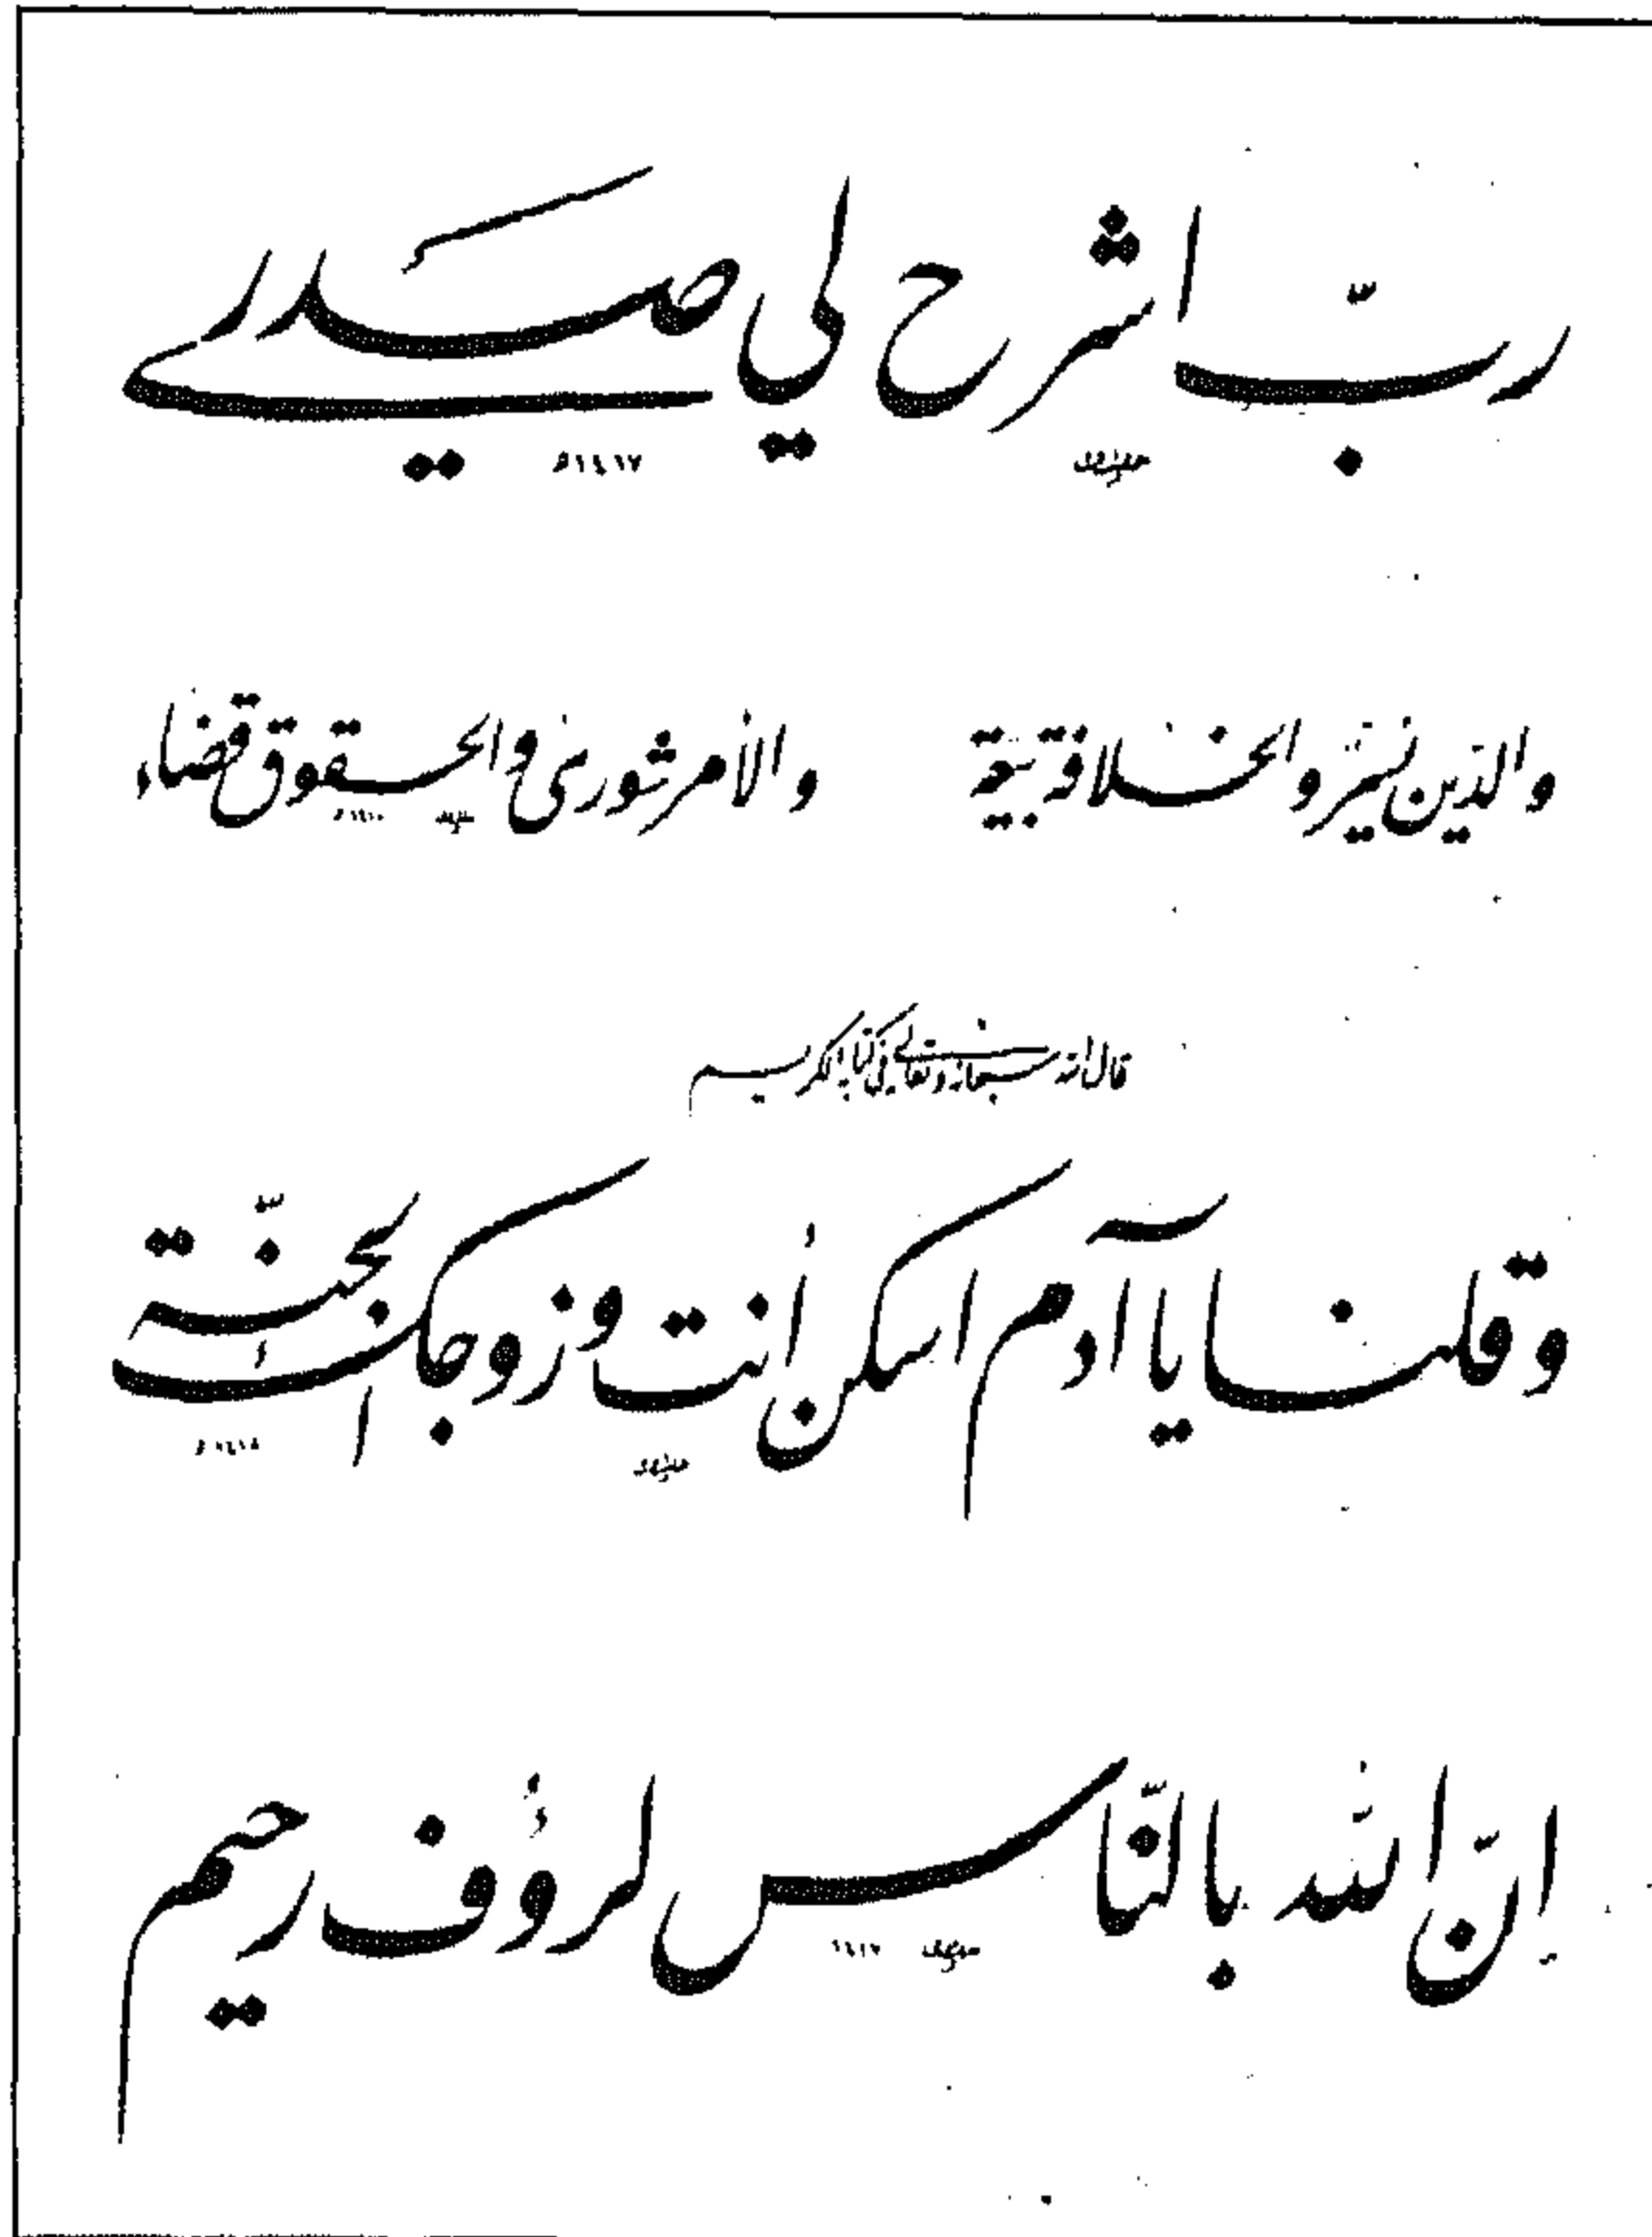 ربّ اشرح لي صدري
١٤١٧
والدّين يسر والخلافة بيعة والأمر شورى والحقوق قضاء
قال الله سبحانه وتعالى في كتابه الكريم
وقلنا يا آدم اسكن أنت وزوجك الجنّة
١٤١٨
إنّ الله بالنّاس لرؤف رحيم
١٤١٧